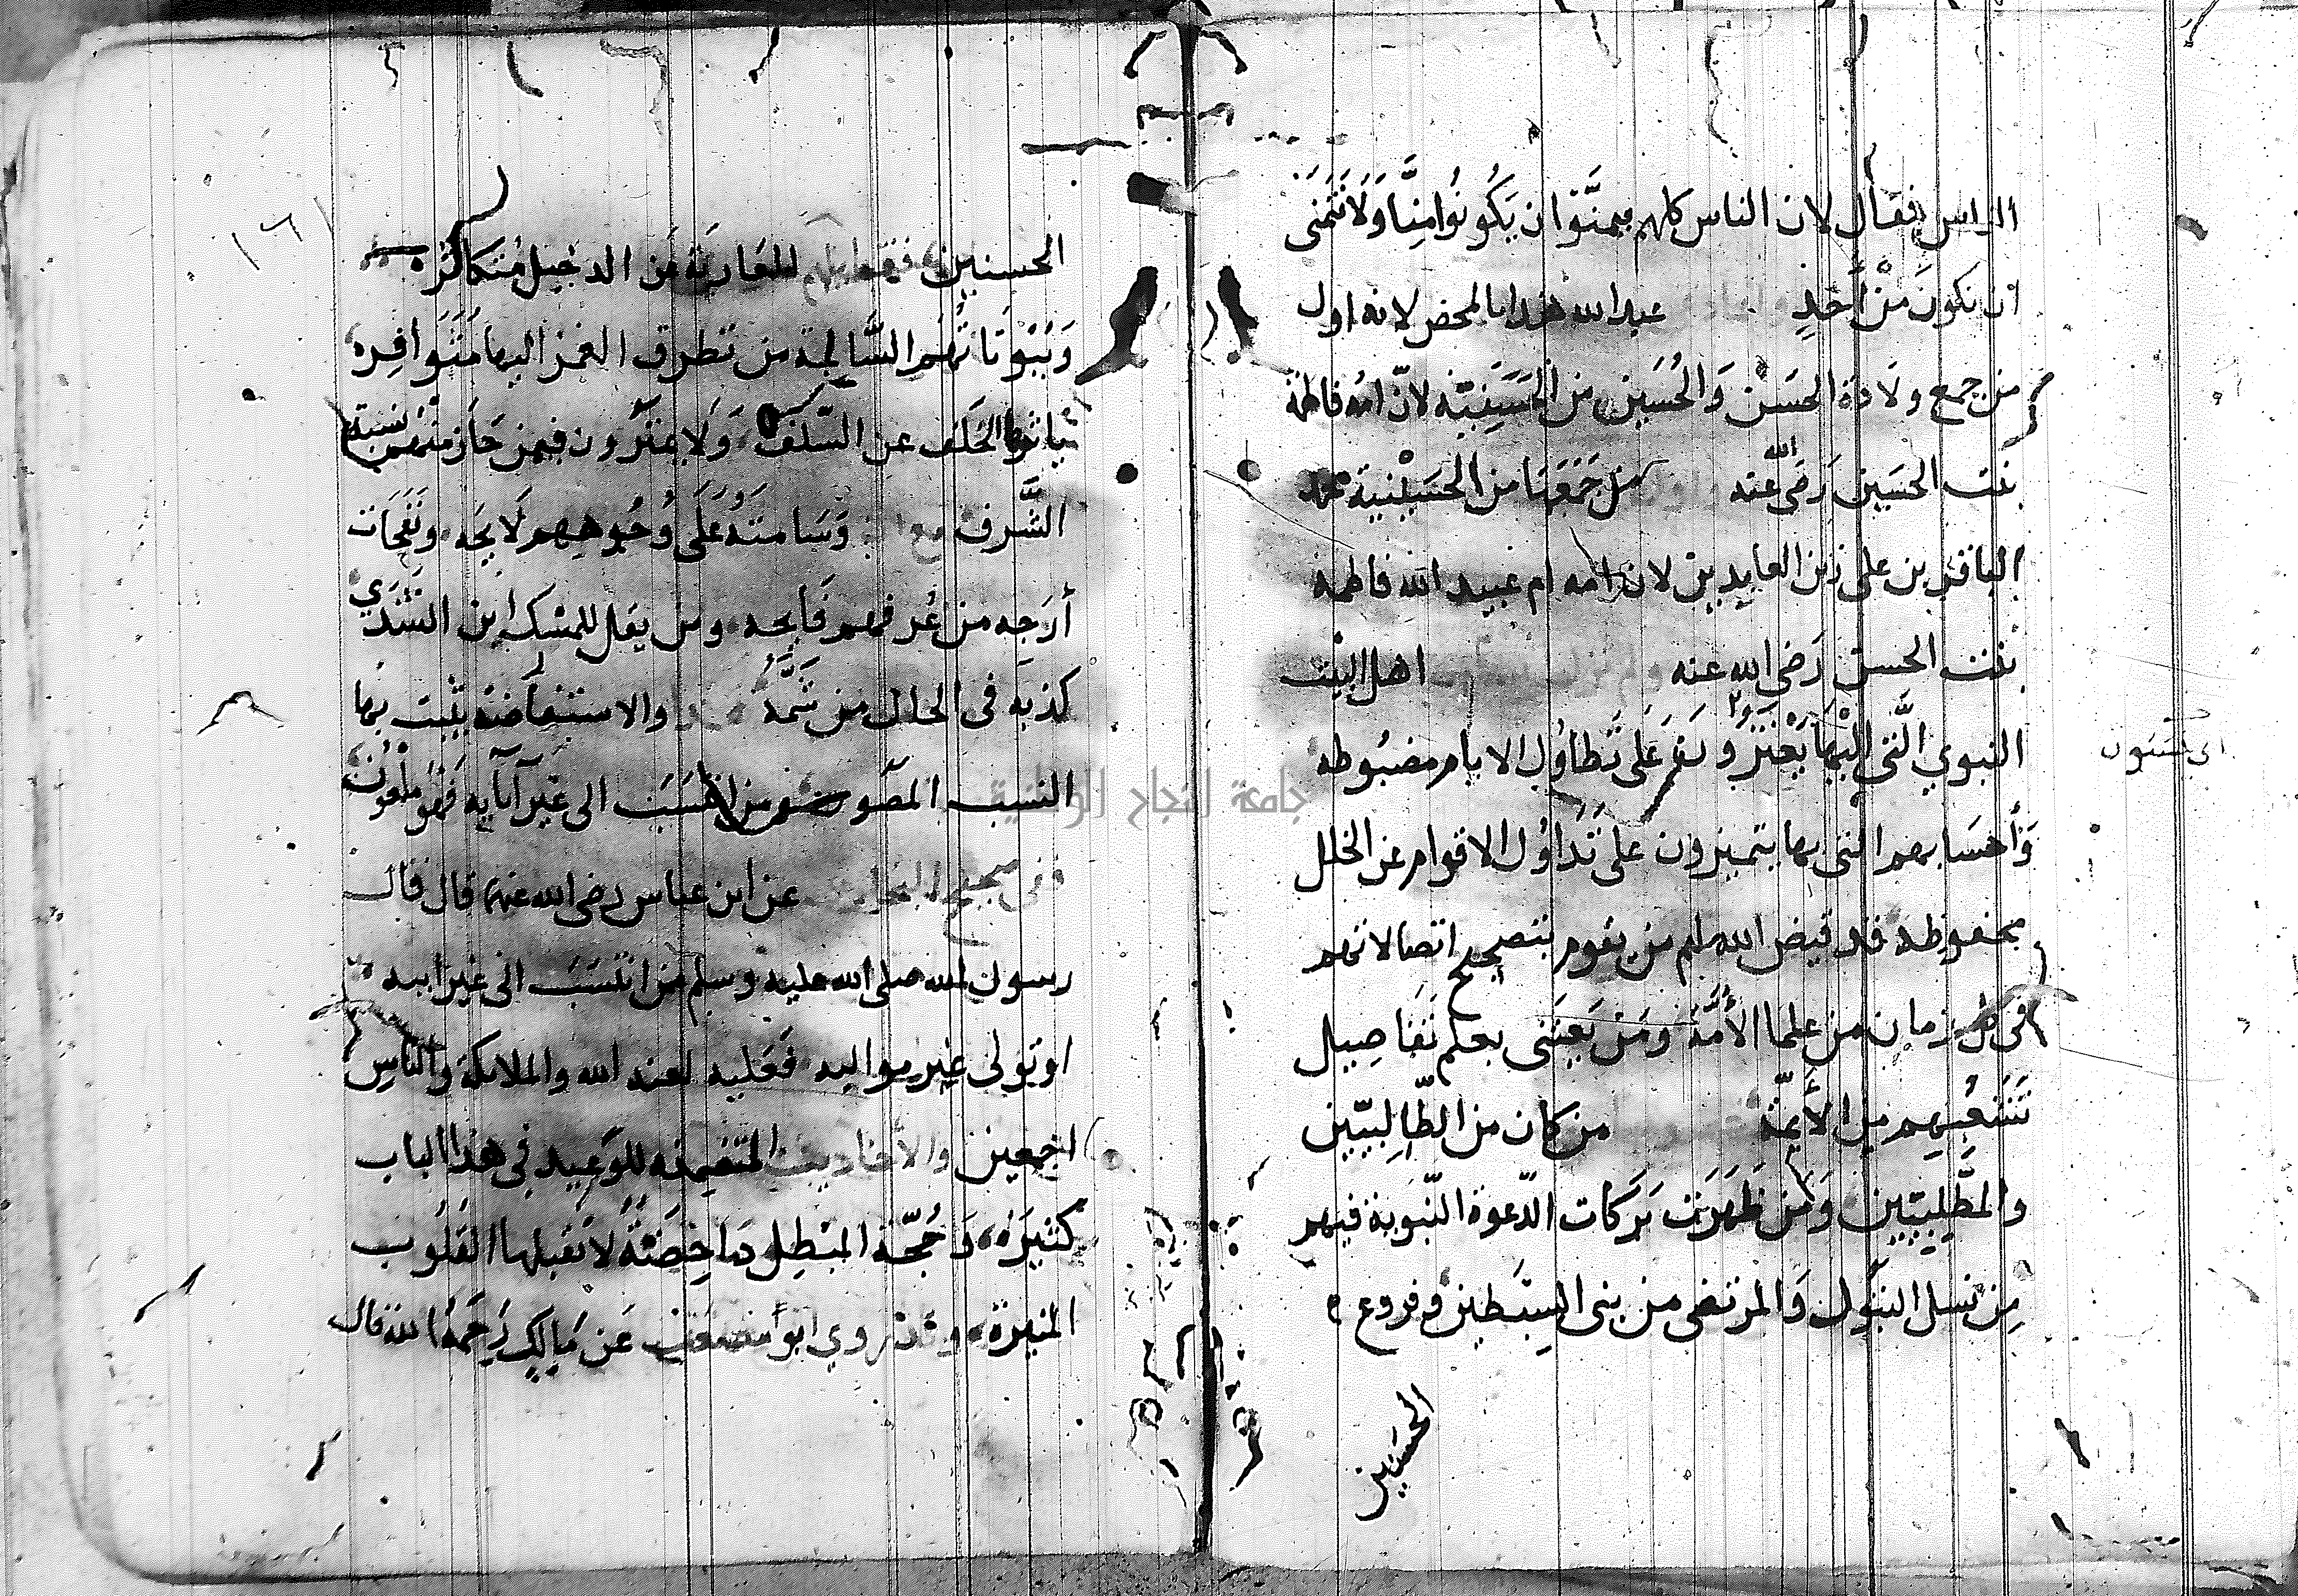 الناس فقال لان الناس كلهم يتمنوا ان يَكُونُوا مِنَّا وَلَا نَتَمَنى
ان نكونَ مِنْ أَحَدٍ عبد الله هذا بالمحض لانه اول
من جمع ولادة الحسن وَالحُسَين من الحَسَنِيّة لانّ امه فاطمة
بنت الحسين رَضى الله عنه من جَمَعَهَا من الحسَيْنية محمد
الباقر بن على زين العابدين لان امه ام عبد الله فاطمة
بنت الحسن رَضى الله عنه اهل البيت
النبوي الَّتى اليْهَا يَعْتَزُونَ عَلَى تَطاوُلِ الايام مضبُوطه
وَأحسَابهم التى بها يتميزون على تَدَاوُل الاقوام عن الخلل
محفوظة قد قيض الله لهم من يقوم بتصحيح اتصالاتهم
فى كل زمان من علما الأمَّة ومَن يَعتَنى بعلم تفَاصيل
تشعبهم من الأيمّة من كان من الطَّالِبيّين
والمطَّلِبيّين وَمَن ظهَرَت بَركات الدّعوة النّبَوية فيهم
مِن نسل البتول وَالمرتضى من بنى السِبطين وفروع
الحسنين
اى ينتسبون
١٦١
الحسنين للعارية من الدخيل متكاثره
وَبُيُوتاتُهُم السَّالمة من تطرق الغمز اليها مُتَوَافِره
ياثرها الخلف عن السّلف وَلا يمتَرُون فيمن حَاز منهُم نسبة
الشَّرف وَسَامتهُ عَلى وُجُوههم لَايحَه ونَفَحَات
أرَجِه من عُرفهم فَايحه ومن يقل للمسك اين الشَّذَى
كذبه فى الحال من شَمَّهُ والاستفاضة يثبت بها
النسب المصُون ومن انتسَبَ الى غير آبايه فَهُوَ مَلْعُون
وفى صحيح البخارى عن ابن عباس رضى الله عنهما قال قال
رسول الله صلى الله عليه وسلم من انتسَبَ الى غير ابيه
او تولى غير مواليه فعَليه لعنة الله والملائكة والناسِ
اجمعين والأحاديث المتضمنه للوَعيد فى هذا الباب
كثيرَة وَحُجّة المبْطِل دَاحِضَةٌ لا تقبلها القلُوب
المنيرة وقد روي ابو مصعَب عَن مَالِكٍ رَحِمَهُ الله قال
جامعة النجاح الوطنية